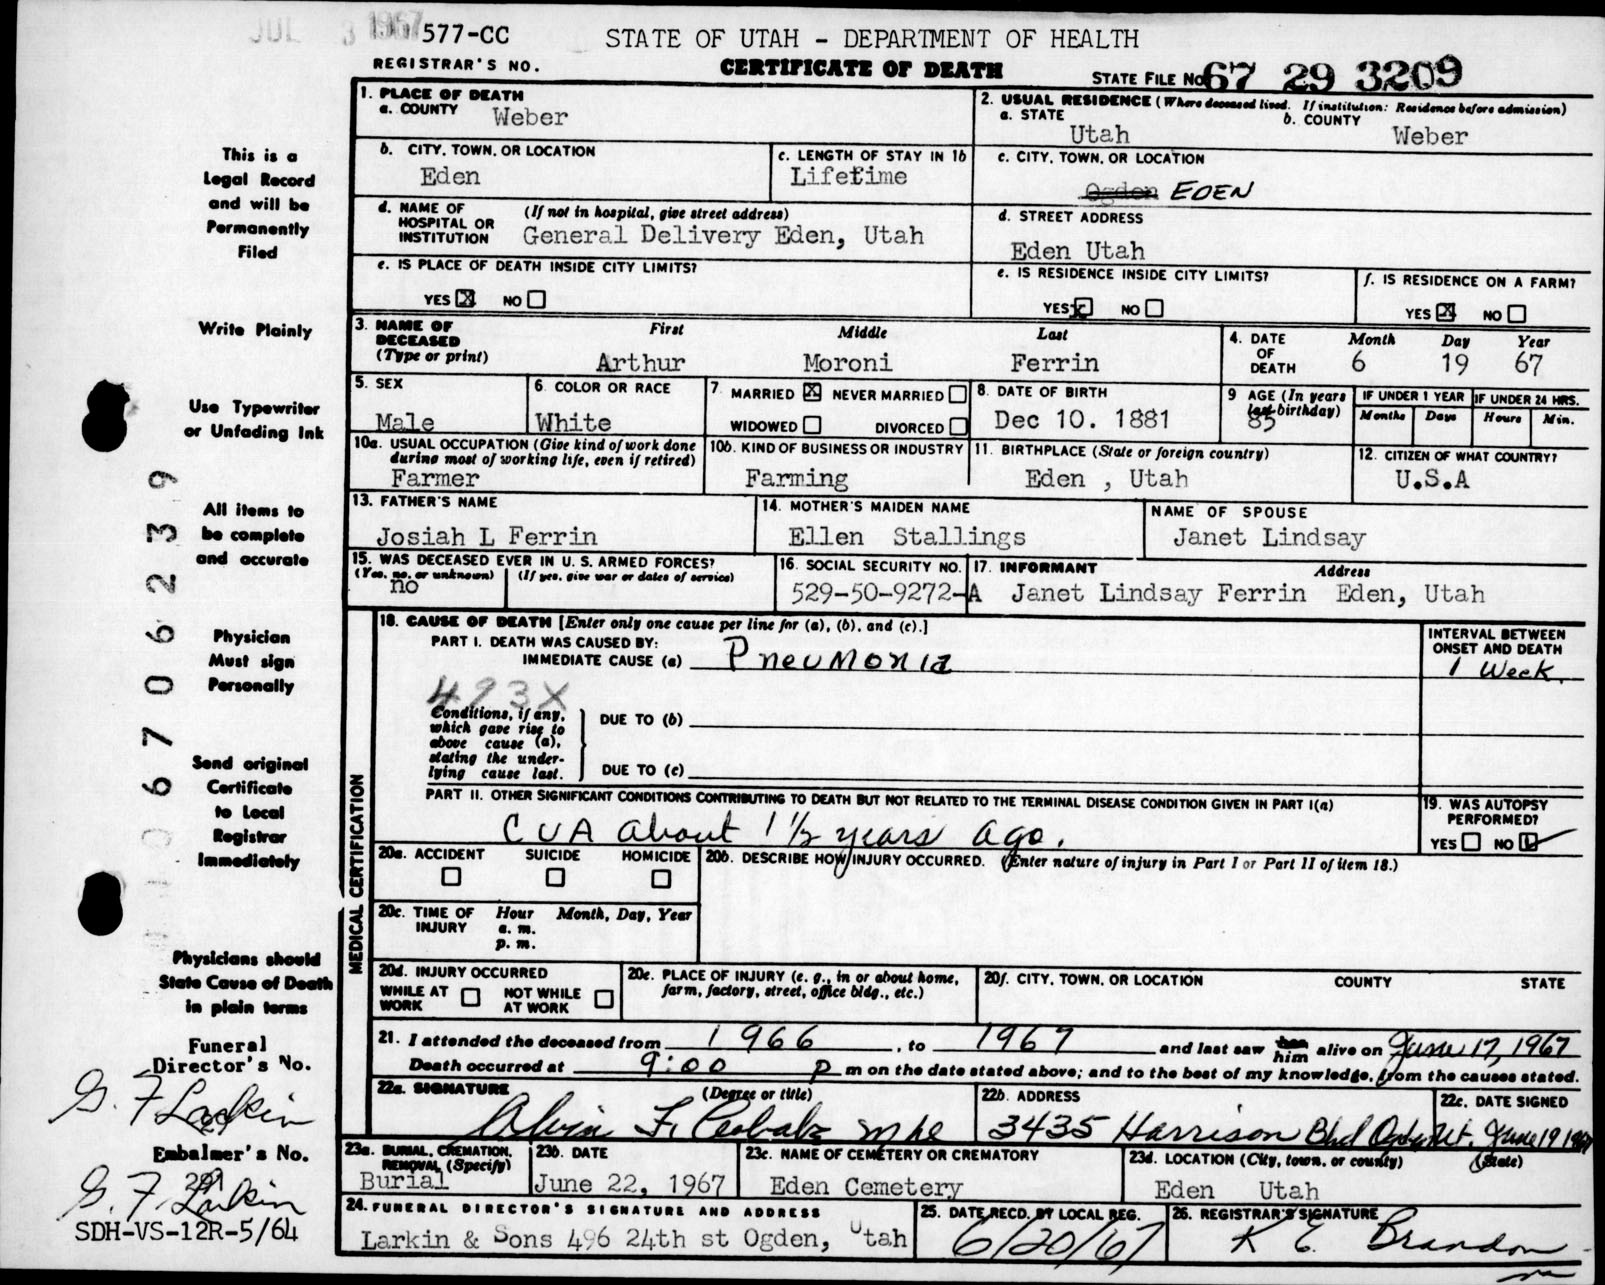 JUL 3 1967 577-CC
STATE OF UTAH - DEPARTMENT OF HEALTH
REGISTRAR'S NO.
CERTIFICATE OF DEATH
STATE FILE No. 67 29 3209
1. PLACE OF DEATH
a. COUNTY Weber
2. USUAL RESIDENCE (Where deceased lived. If institution: Residence before admission)
a. STATE Utah b. COUNTY Weber
b. CITY, TOWN, OR LOCATION Eden
c. LENGTH OF STAY IN 1b Lifetime
c. CITY, TOWN, OR LOCATION Ogden EDEN
d. NAME OF HOSPITAL OR INSTITUTION (If not in hospital, give street address)
General Delivery Eden, Utah
d. STREET ADDRESS
Eden Utah
e. IS PLACE OF DEATH INSIDE CITY LIMITS?
YES X NO
e. IS RESIDENCE INSIDE CITY LIMITS?
YES X NO
f. IS RESIDENCE ON A FARM?
YES X NO
3. NAME OF DECEASED (Type or print)
First Middle Last
Arthur Moroni Ferrin
4. DATE OF DEATH Month Day Year
6 19 67
5. SEX Male
6. COLOR OR RACE White
7. MARRIED X NEVER MARRIED
WIDOWED DIVORCED
8. DATE OF BIRTH Dec 10. 1881
9 AGE (In years last birthday) 85
IF UNDER 1 YEAR Months Days
IF UNDER 24 HRS. Hours Min.
10a. USUAL OCCUPATION (Give kind of work done during most of working life, even if retired)
Farmer
10b. KIND OF BUSINESS OR INDUSTRY
Farming
11. BIRTHPLACE (State or foreign country)
Eden , Utah
12. CITIZEN OF WHAT COUNTRY?
U.S.A
13. FATHER'S NAME
Josiah L Ferrin
14. MOTHER'S MAIDEN NAME
Ellen Stallings
NAME OF SPOUSE
Janet Lindsay
15. WAS DECEASED EVER IN U. S. ARMED FORCES?
(Yes, no, or unknown) (If yes, give war or dates of service)
no
16. SOCIAL SECURITY NO.
529-50-9272-A
17. INFORMANT Address
Janet Lindsay Ferrin Eden, Utah
18. CAUSE OF DEATH [Enter only one cause per line for (a), (b), and (c).]
PART I. DEATH WAS CAUSED BY:
IMMEDIATE CAUSE (a) Pneumonia
INTERVAL BETWEEN ONSET AND DEATH
1 Week.
493X
Conditions, if any, which gave rise to above cause (a), stating the underlying cause last.
DUE TO (b)
DUE TO (c)
PART II. OTHER SIGNIFICANT CONDITIONS CONTRIBUTING TO DEATH BUT NOT RELATED TO THE TERMINAL DISEASE CONDITION GIVEN IN PART I(a)
CVA about 1 1/2 years ago.
19. WAS AUTOPSY PERFORMED?
YES NO
20a. ACCIDENT SUICIDE HOMICIDE
20b. DESCRIBE HOW INJURY OCCURRED. (Enter nature of injury in Part I or Part II of item 18.)
20c. TIME OF INJURY Hour Month, Day, Year
a. m.
p. m.
20d. INJURY OCCURRED
WHILE AT WORK NOT WHILE AT WORK
20e. PLACE OF INJURY (e. g., in or about home, farm, factory, street, office bldg., etc.)
20f. CITY, TOWN, OR LOCATION COUNTY STATE
21. I attended the deceased from 1966, to 1967 and last saw him alive on June 17, 1967
Death occurred at 9:00 P m on the date stated above; and to the best of my knowledge, from the causes stated.
22a. SIGNATURE (Degree or title)
Alvin F.
22b. ADDRESS
3435 Harrison Blvd Ogden Ut.
22c. DATE SIGNED
June 19 1967
23a. BURIAL, CREMATION, REMOVAL (Specify)
Burial
23b. DATE
June 22, 1967
23c. NAME OF CEMETERY OR CREMATORY
Eden Cemetery
23d. LOCATION (City, town, or county) (State)
Eden Utah
24. FUNERAL DIRECTOR'S SIGNATURE AND ADDRESS
Larkin & Sons 496 24th st Ogden, Utah
25. DATE RECD. BY LOCAL REG.
6/20/67
26. REGISTRAR'S SIGNATURE
K E Brandon
MEDICAL CERTIFICATION
This is a
Legal Record
and will be
Permanently
Filed
Write Plainly
Use Typewriter
or Unfading Ink
All items to
be complete
and accurate
Physician
Must sign
Personally
Send original
Certificate
to Local
Registrar
Immediately
Physicians should
State Cause of Death
in plain terms
Funeral
Director's No.
G. F Larkin
Embalmer's No.
G. F. Larkin
SDH-VS-12R-5/64
6706239